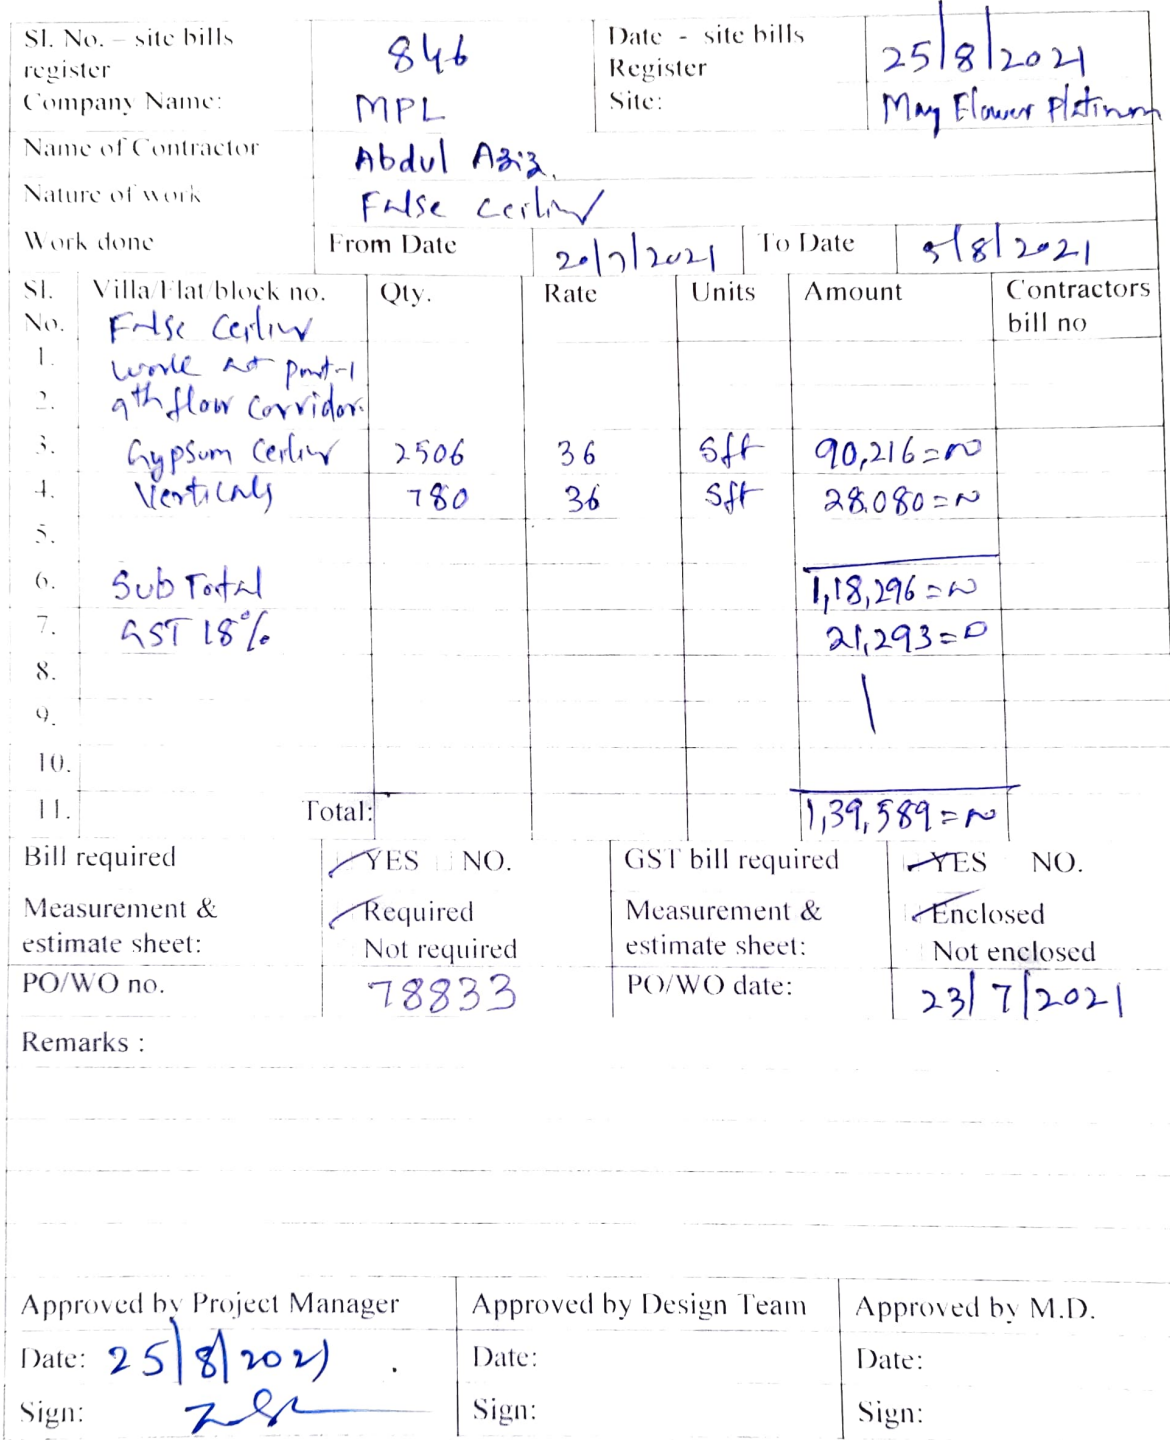 Sl. No. – site bills register 846 Date - site bills Register 25/8/2021
Company Name: MPL Site: May Flower Platinum
Name of Contractor Abdul Aziz.
Nature of work False Ceiling
Work done From Date 20/7/2021 To Date 5/8/2021
Sl. No. Villa/Flat/block no. Qty. Rate Units Amount Contractors bill no
False Ceiling
1. work at part-1
2. 9th floor corridor.
3. Gypsum Ceiling 2506 36 Sft 90,216=00
4. Verticals 780 36 Sft 28,080=00
5.
6. Sub Total 1,18,296=00
7. GST 18% 21,293=0
8.
9.
10.
11. Total: 1,39,589=00
Bill required YES NO. GST bill required YES NO.
Measurement & estimate sheet: Required Not required Measurement & estimate sheet: Enclosed Not enclosed
PO/WO no. 78833 PO/WO date: 23/7/2021
Remarks :
Approved by Project Manager Approved by Design Team Approved by M.D.
Date: 25/8/2021 Date: Date:
Sign: Sign: Sign: